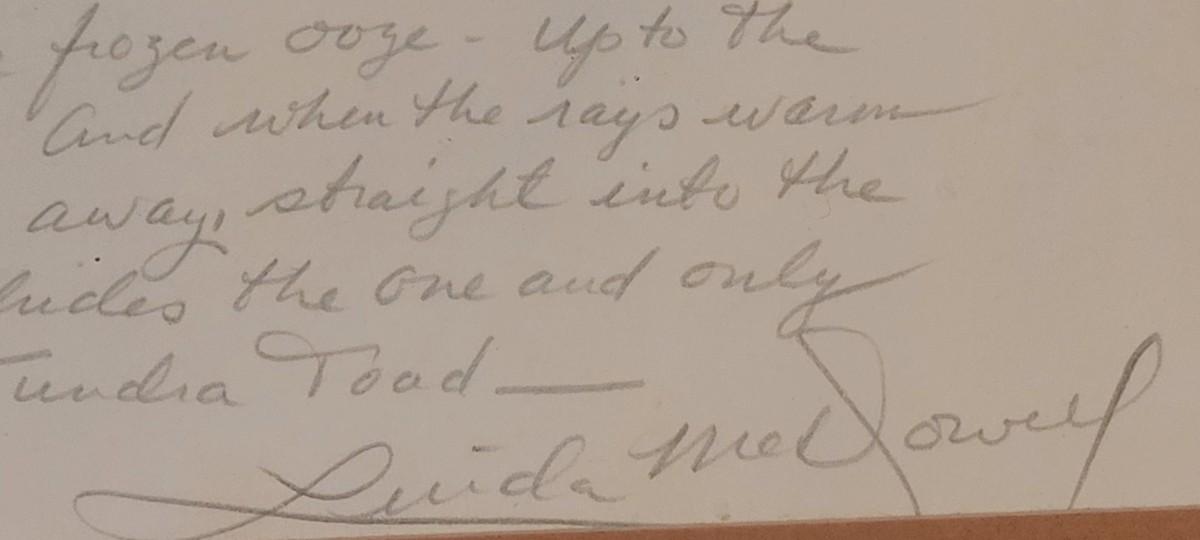 frozen ooze - Up to the
And when the rays warm
away, straight into the
ludes the one and only
Tundra Toad —
Linda McDowell